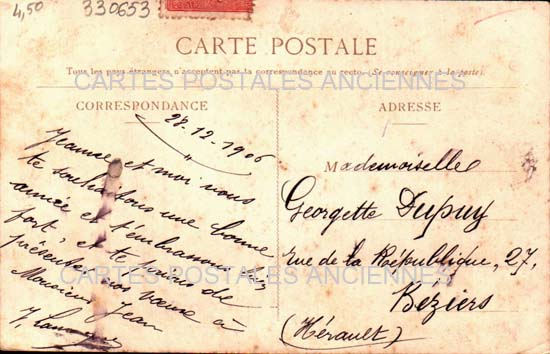 4,50
330653
CARTE POSTALE
Tous les pays étrangers n'acceptent pas la correspondance au recto. (Se renseigner à la poste)
CARTES POSTALES ANCIENNES
CORRESPONDANCE
ADRESSE
28-12-1906
Jeanne et moi nous
te souhaitons une bonne
année et t'embrassons bien
fort, et te prions de
présenter nos vœux à
Monsieur Jean
Mademoiselle
Georgette Dupuy
Rue de la République, 27,
Béziers
(Hérault)
CARTES POSTALES ANCIENNES